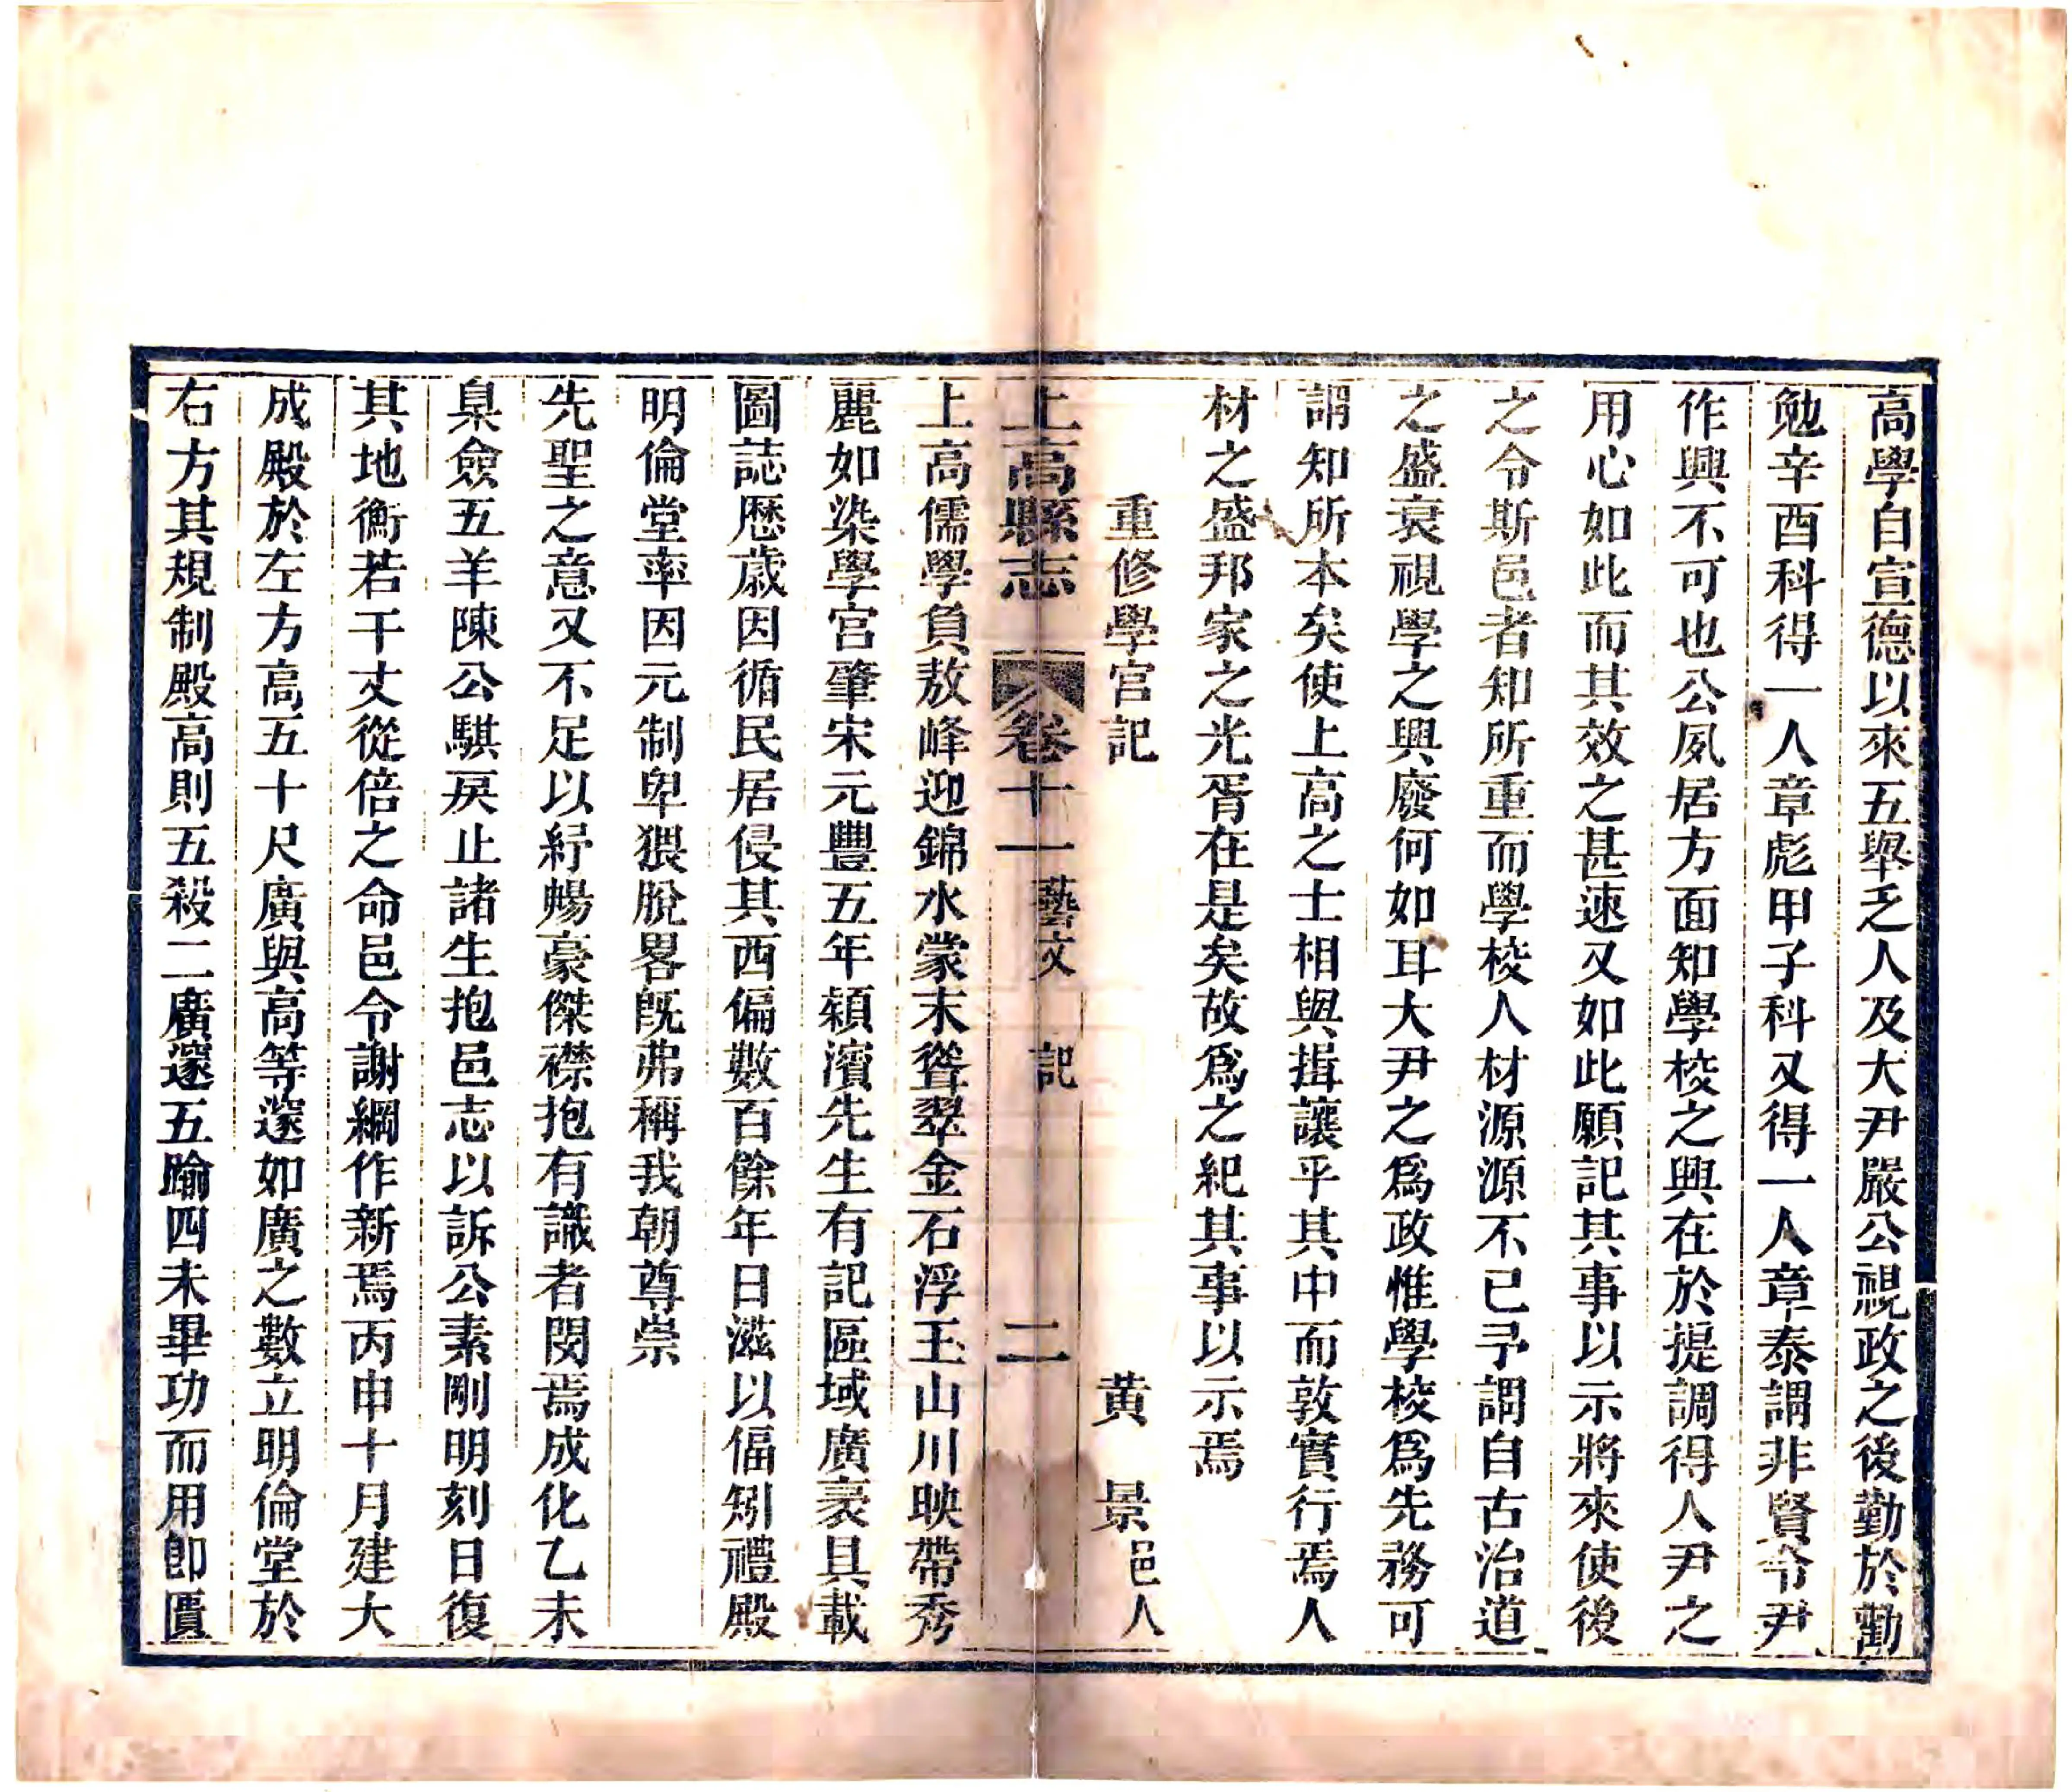 高學自宣德以來五舉乏人及大尹嚴公視政之後勤於勸
勉辛酉科得一人章彪甲子科又得一人章泰謂非賢令尹
作興不可也公夙居方面知學校之興在於提調得人尹之
用心如此而其效之甚速又如此願記其事以示將來使後
之令斯邑者知所重而學校人材源源不已予謂自古治道
之盛衰視學之興廢何如耳大尹之爲政惟學校爲先務可
謂知所本矣使上高之士相與揖讓乎其中而敦實行焉人
材之盛邦家之光胥在是矣故爲之紀其事以示焉
重修學宮記 黄景邑人
上高縣志 卷十一 藝文 記 二
上高儒學負敖峰迎錦水蒙末聳翠金石浮玉山川映帶秀
麗如染學宮肇宋元豐五年潁濱先生有記區域廣袤具載
圖誌歷歲因循民居侵其西偏數百餘年日滋以偪矧禮殿
明倫堂率因元制卑猥脫畧旣弗稱我朝尊崇
先聖之意又不足以紓暢豪傑襟抱有識者閔焉成化乙未
臬僉五羊陳公騏戾止諸生抱邑志以訴公素剛明刻日復
其地衡若干丈從倍之命邑令謝綱作新焉丙申十月建大
成殿於左方高五十尺廣與高等邃如廣之數立明倫堂於
右方其規制殿高則五殺二廣邃五踰四未畢功而用卽匱